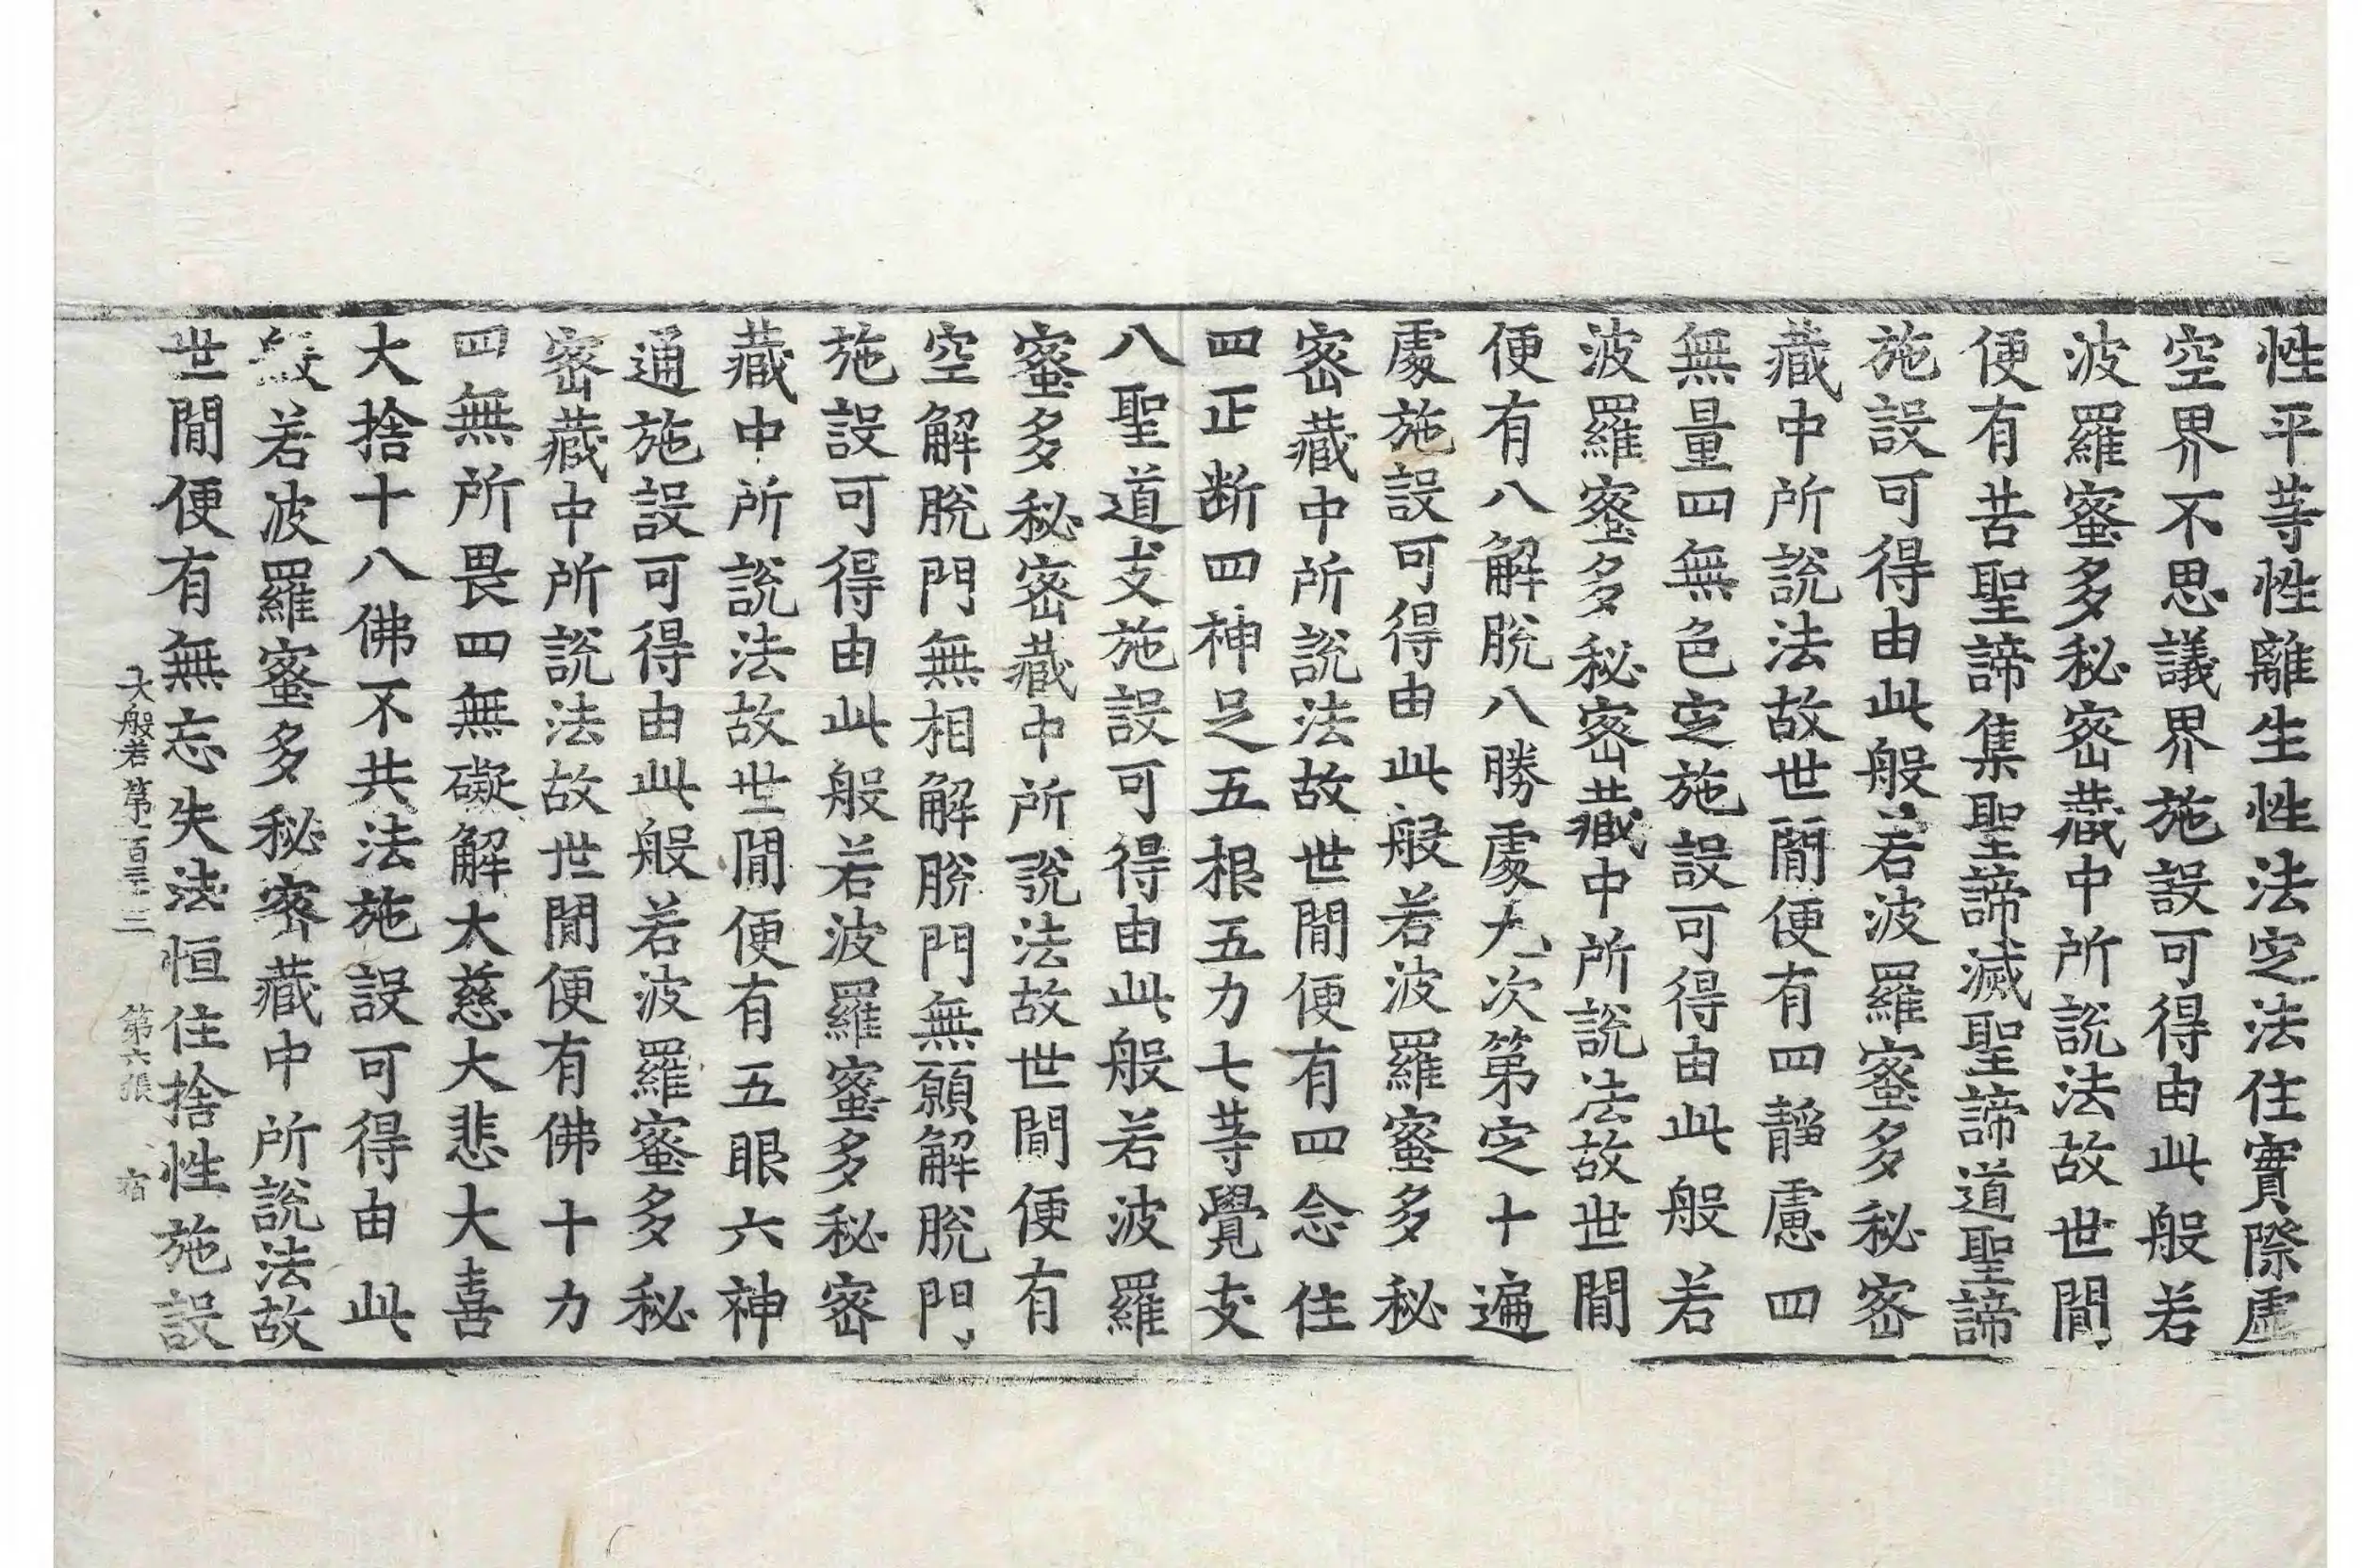 性平等性離生性法定法住實際虛
空界不思議界施設可得由此般若
波羅蜜多秘密藏中所說法故世間
便有苦聖諦集聖諦滅聖諦道聖諦
施設可得由此般若波羅蜜多秘密
藏中所說法故世間便有四靜慮四
無量四無色定施設可得由此般若
波羅蜜多秘密藏中所說法故世間
便有八解脫八勝處九次第定十遍
處施設可得由此般若波羅蜜多秘
密藏中所說法故世間便有四念住
四正斷四神足五根五力七等覺支
八聖道支施設可得由此般若波羅
蜜多秘密藏中所說法故世間便有
空解脫門無相解脫門無願解脫門
施設可得由此般若波羅蜜多秘密
藏中所說法故世間便有五眼六神
通施設可得由此般若波羅蜜多秘
密藏中所說法故世間便有佛十力
四無所畏四無礙解大慈大悲大喜
大捨十八佛不共法施設可得由此
般若波羅蜜多秘密藏中所說法故
世間便有無忘失法恒住捨性施設
大般若第一百三十三 第六張 宿